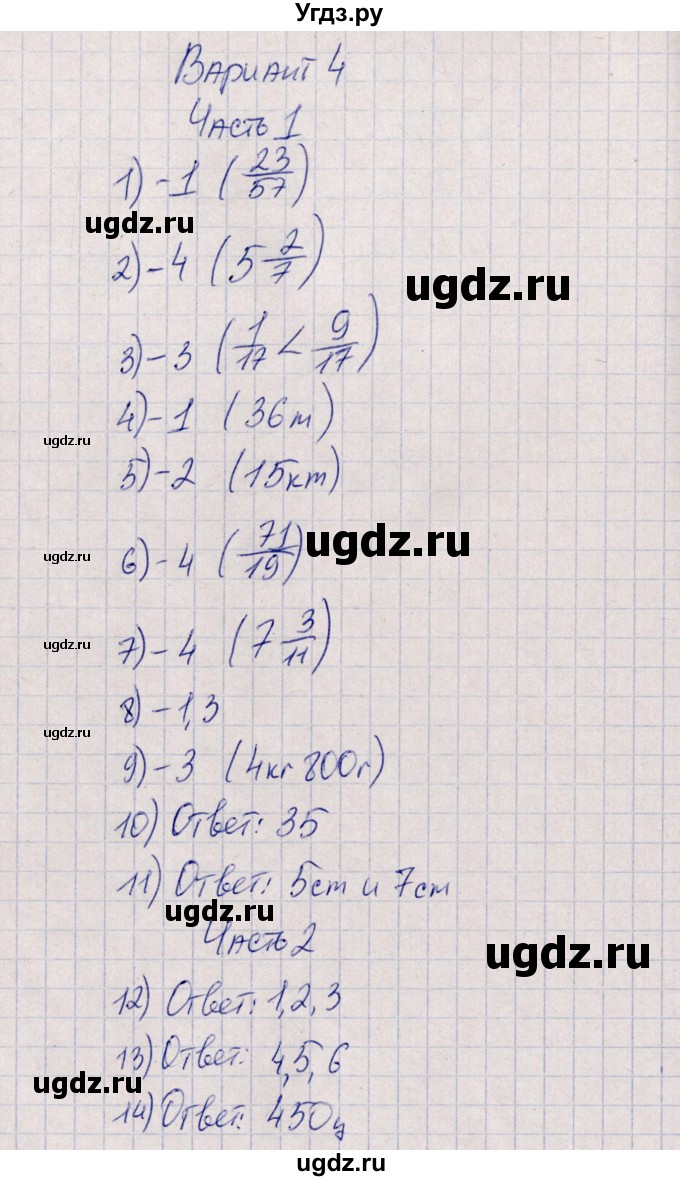 Угдз.ру
Вариант 4
Часть 1
1) - 1 (23/57)
ugdz.ru
2) - 4 (5 2/7)
ugdz.ru
3) - 3 (1/17 < 9/17)
4) - 1 (36m)
ugdz.ru
5) - 2 (15km)
6) - 4 (71/19)
ugdz.ru
ugdz.ru
7) - 4 (7 3/11)
ugdz.ru
8) - 1,3
ugdz.ru
9) - 3 (4кг 800г)
10) Ответ: 35
11) Ответ: 5cm и 7cm
ugdz.ru
Часть 2
ugdz.ru
12) Ответ: 1,2,3
13) Ответ: 4,5,6
ugdz.ru
14) Ответ: 450ц
ugdz.ru